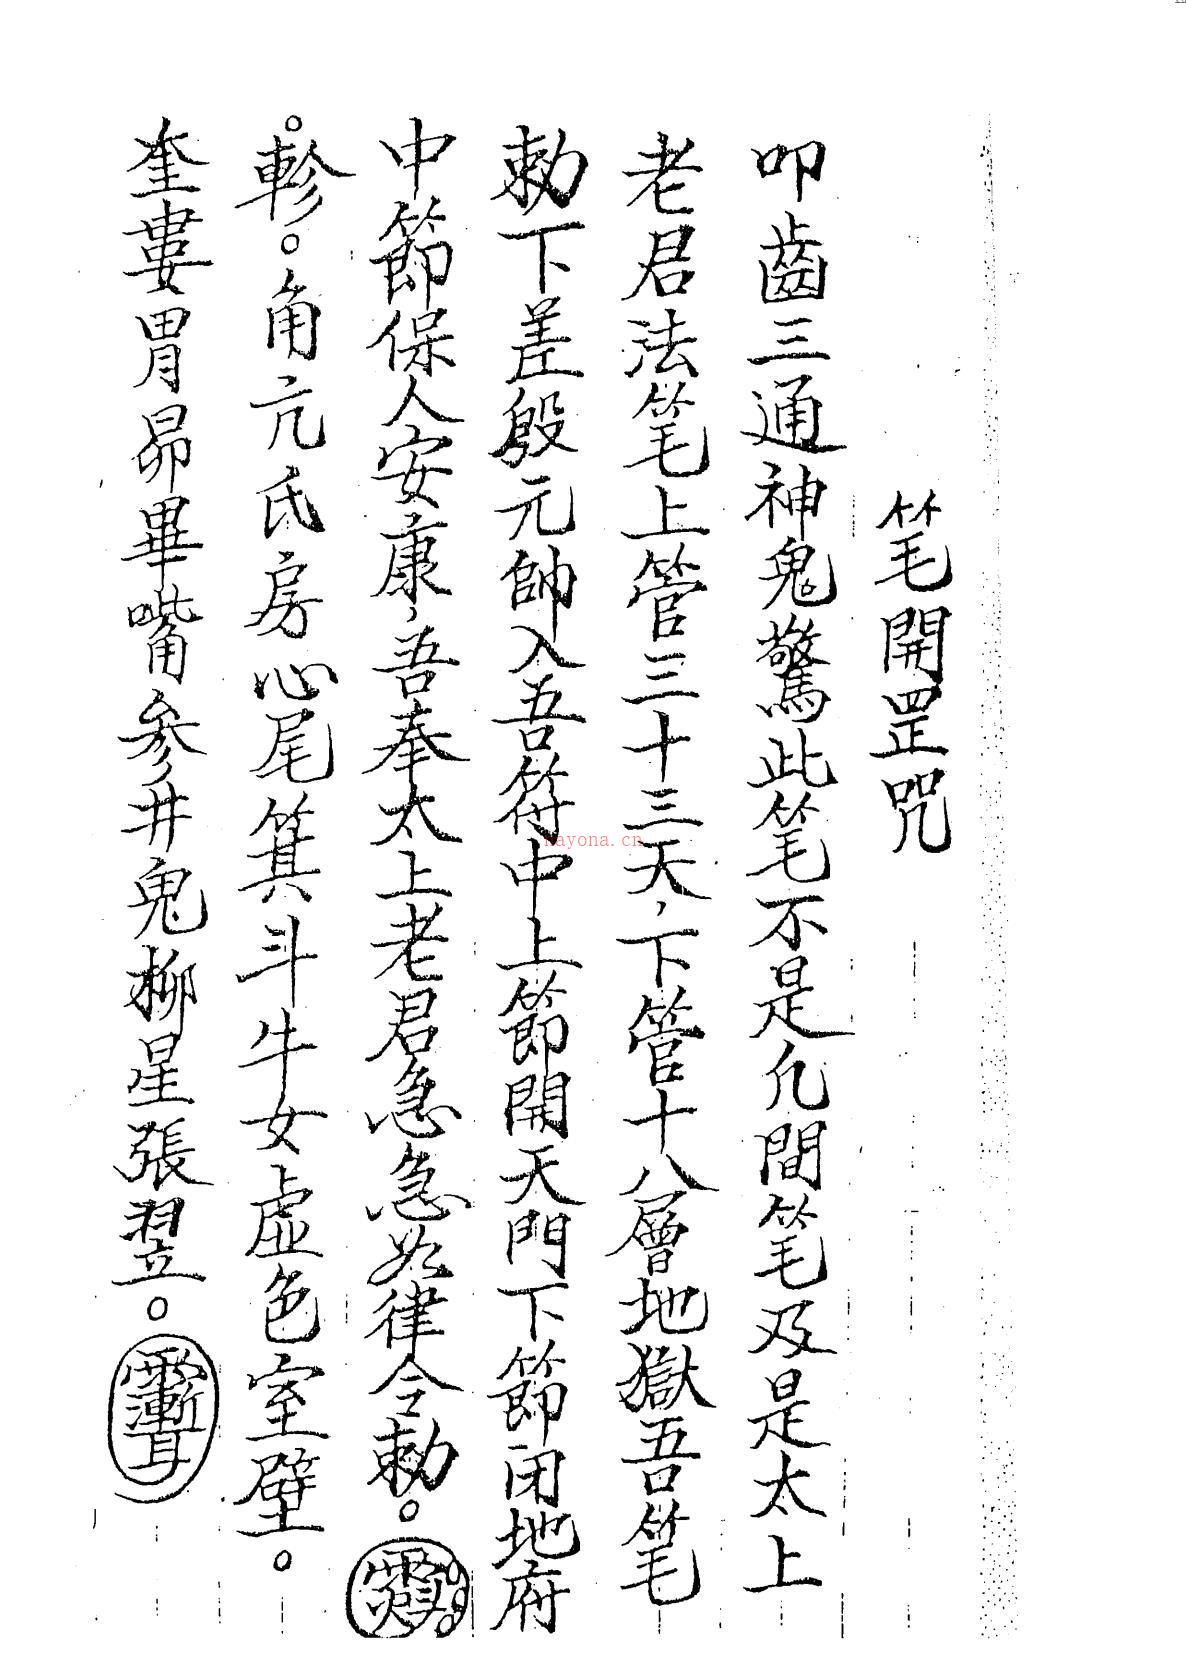 笔開罡咒
叩齒三通神鬼驚此笔不是凢間笔及是太上
老君法笔上管三十三天,下管十八層地獄吾笔
勅下差殷元帥入吾符中上節開天門下節闭地府
中節保人安康,吾奉太上老君急急如律令勅。
。軫。角亢氐房心尾箕斗牛女虚色室壁。
奎婁胃昴畢嘴参井鬼柳星張翌。
nayona.cn